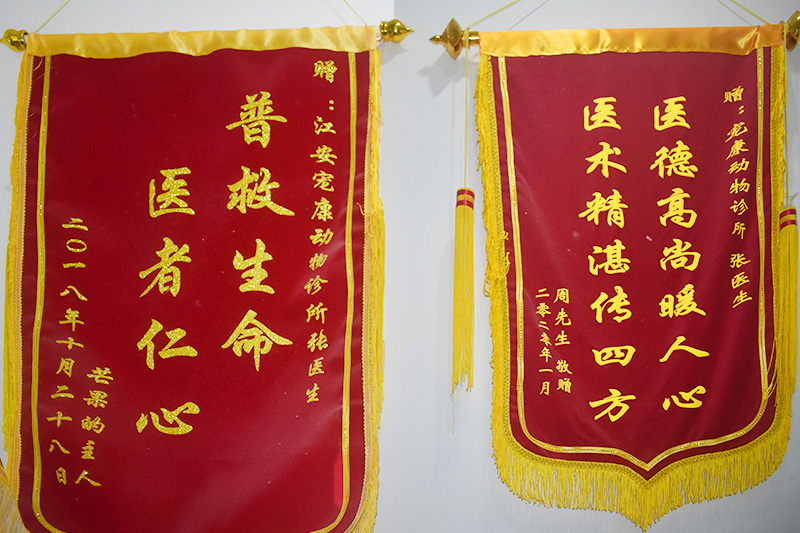 赠：江安宠康动物诊所张医生
普救生命
医者仁心
芒果的主人
二〇一八年十月二十八日
赠：宠康动物诊所 张医生
医德高尚暖人心
医术精湛传四方
周先生 敬赠
二零二零年一月